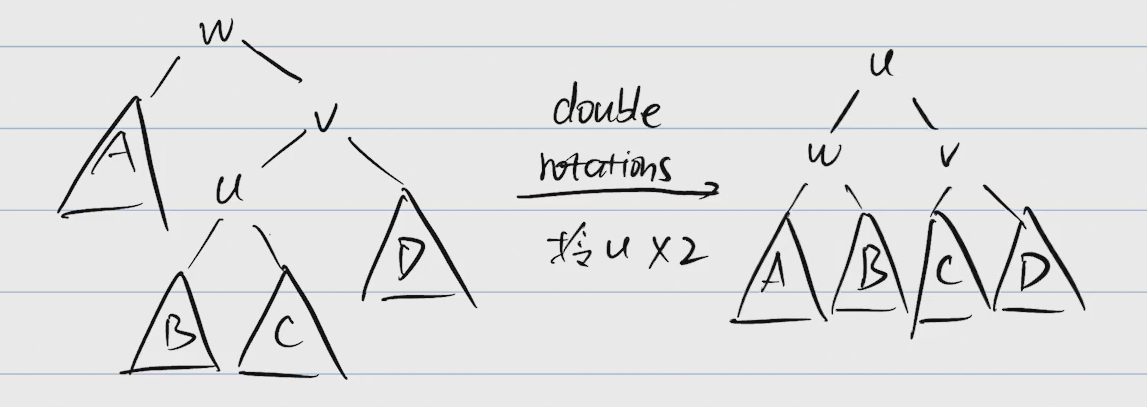 w
A
v
u
D
B
C
double
rotations
拎 u ×2
u
w v
A B C D